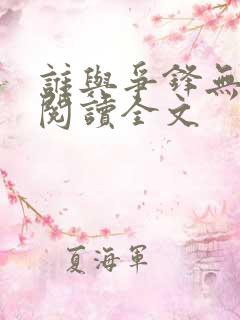 誰與爭鋒無
閱讀全文
夏海軍